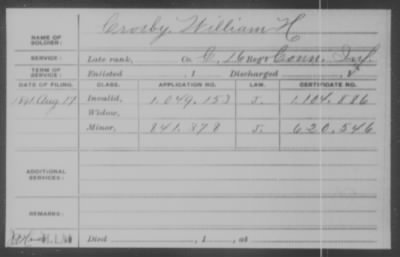 NAME OF SOLDIER: Crosby, William H
SERVICE: Late rank, Co. C, 16 Reg't Conn. Inf.
TERM OF SERVICE: Enlisted , 1 Discharged , 1
DATE OF FILING. CLASS. APPLICATION NO. LAW. CERTIFICATE NO.
1891 Aug 17 Invalid, 1.049.153 J. 1.104.886
Widow,
Minor, 841.878 J. 620.546
ADDITIONAL SERVICES:
REMARKS:
Died , 1 , at